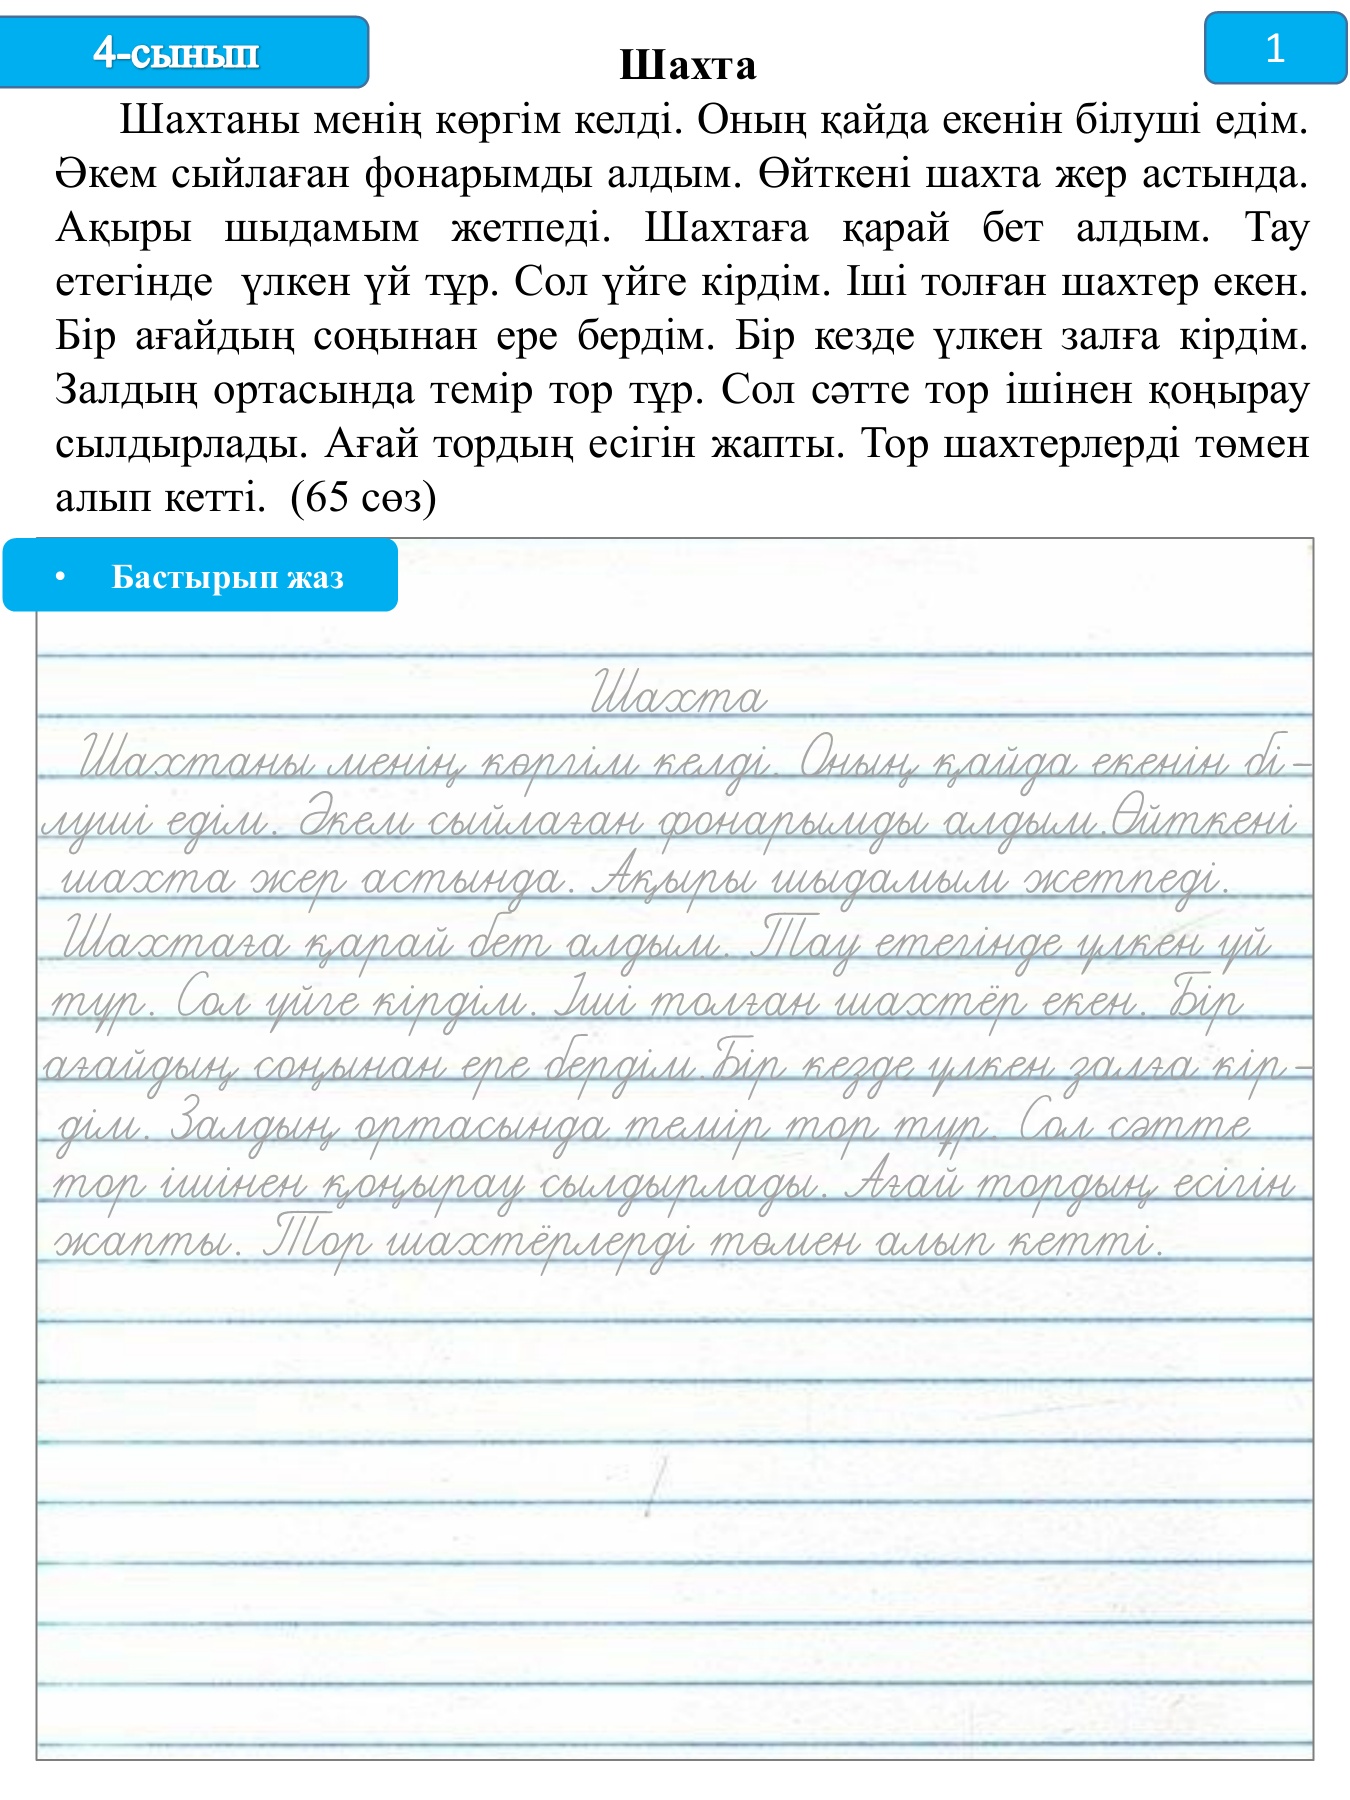 4-сынып
1
Шахта
Шахтаны менің көргім келді. Оның қайда екенін білуші едім.
Әкем сыйлаған фонарымды алдым. Өйткені шахта жер астында.
Ақыры шыдамым жетпеді. Шахтаға қарай бет алдым. Тау
етегінде үлкен үй тұр. Сол үйге кірдім. Іші толған шахтер екен.
Бір ағайдың соңынан ере бердім. Бір кезде үлкен залға кірдім.
Залдың ортасында темір тор тұр. Сол сәтте тор ішінен қоңырау
сылдырлады. Ағай тордың есігін жапты. Тор шахтерлерді төмен
алып кетті. (65 сөз)
• Бастырып жаз
Шахта
Шахтаны менің көргім келді. Оның қайда екенін бі-
луші едім. Әкем сыйлаған фонарымды алдым.Өйткені
шахта жер астында. Ақыры шыдамым жетпеді.
Шахтаға қарай бет алдым. Тау етегінде үлкен үй
тұр. Сол үйге кірдім. Іші толған шахтёр екен. Бір
ағайдың соңынан ере бердім.Бір кезде үлкен залға кір-
дім. Залдың ортасында темір тор тұр. Сол сәтте
тор ішінен қоңырау сылдырлады. Ағай тордың есігін
жапты. Тор шахтёрлерді төмен алып кетті.